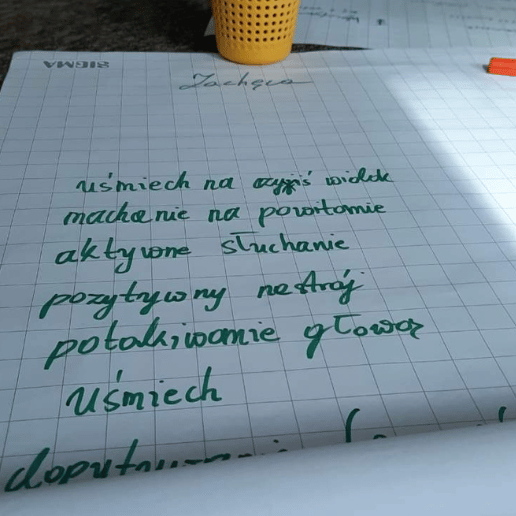 SIGMA
Zachęca
uśmiech na czyjś widok
machanie na powitanie
aktywne słuchanie
pozytywny nastrój
potakiwanie głową
uśmiech